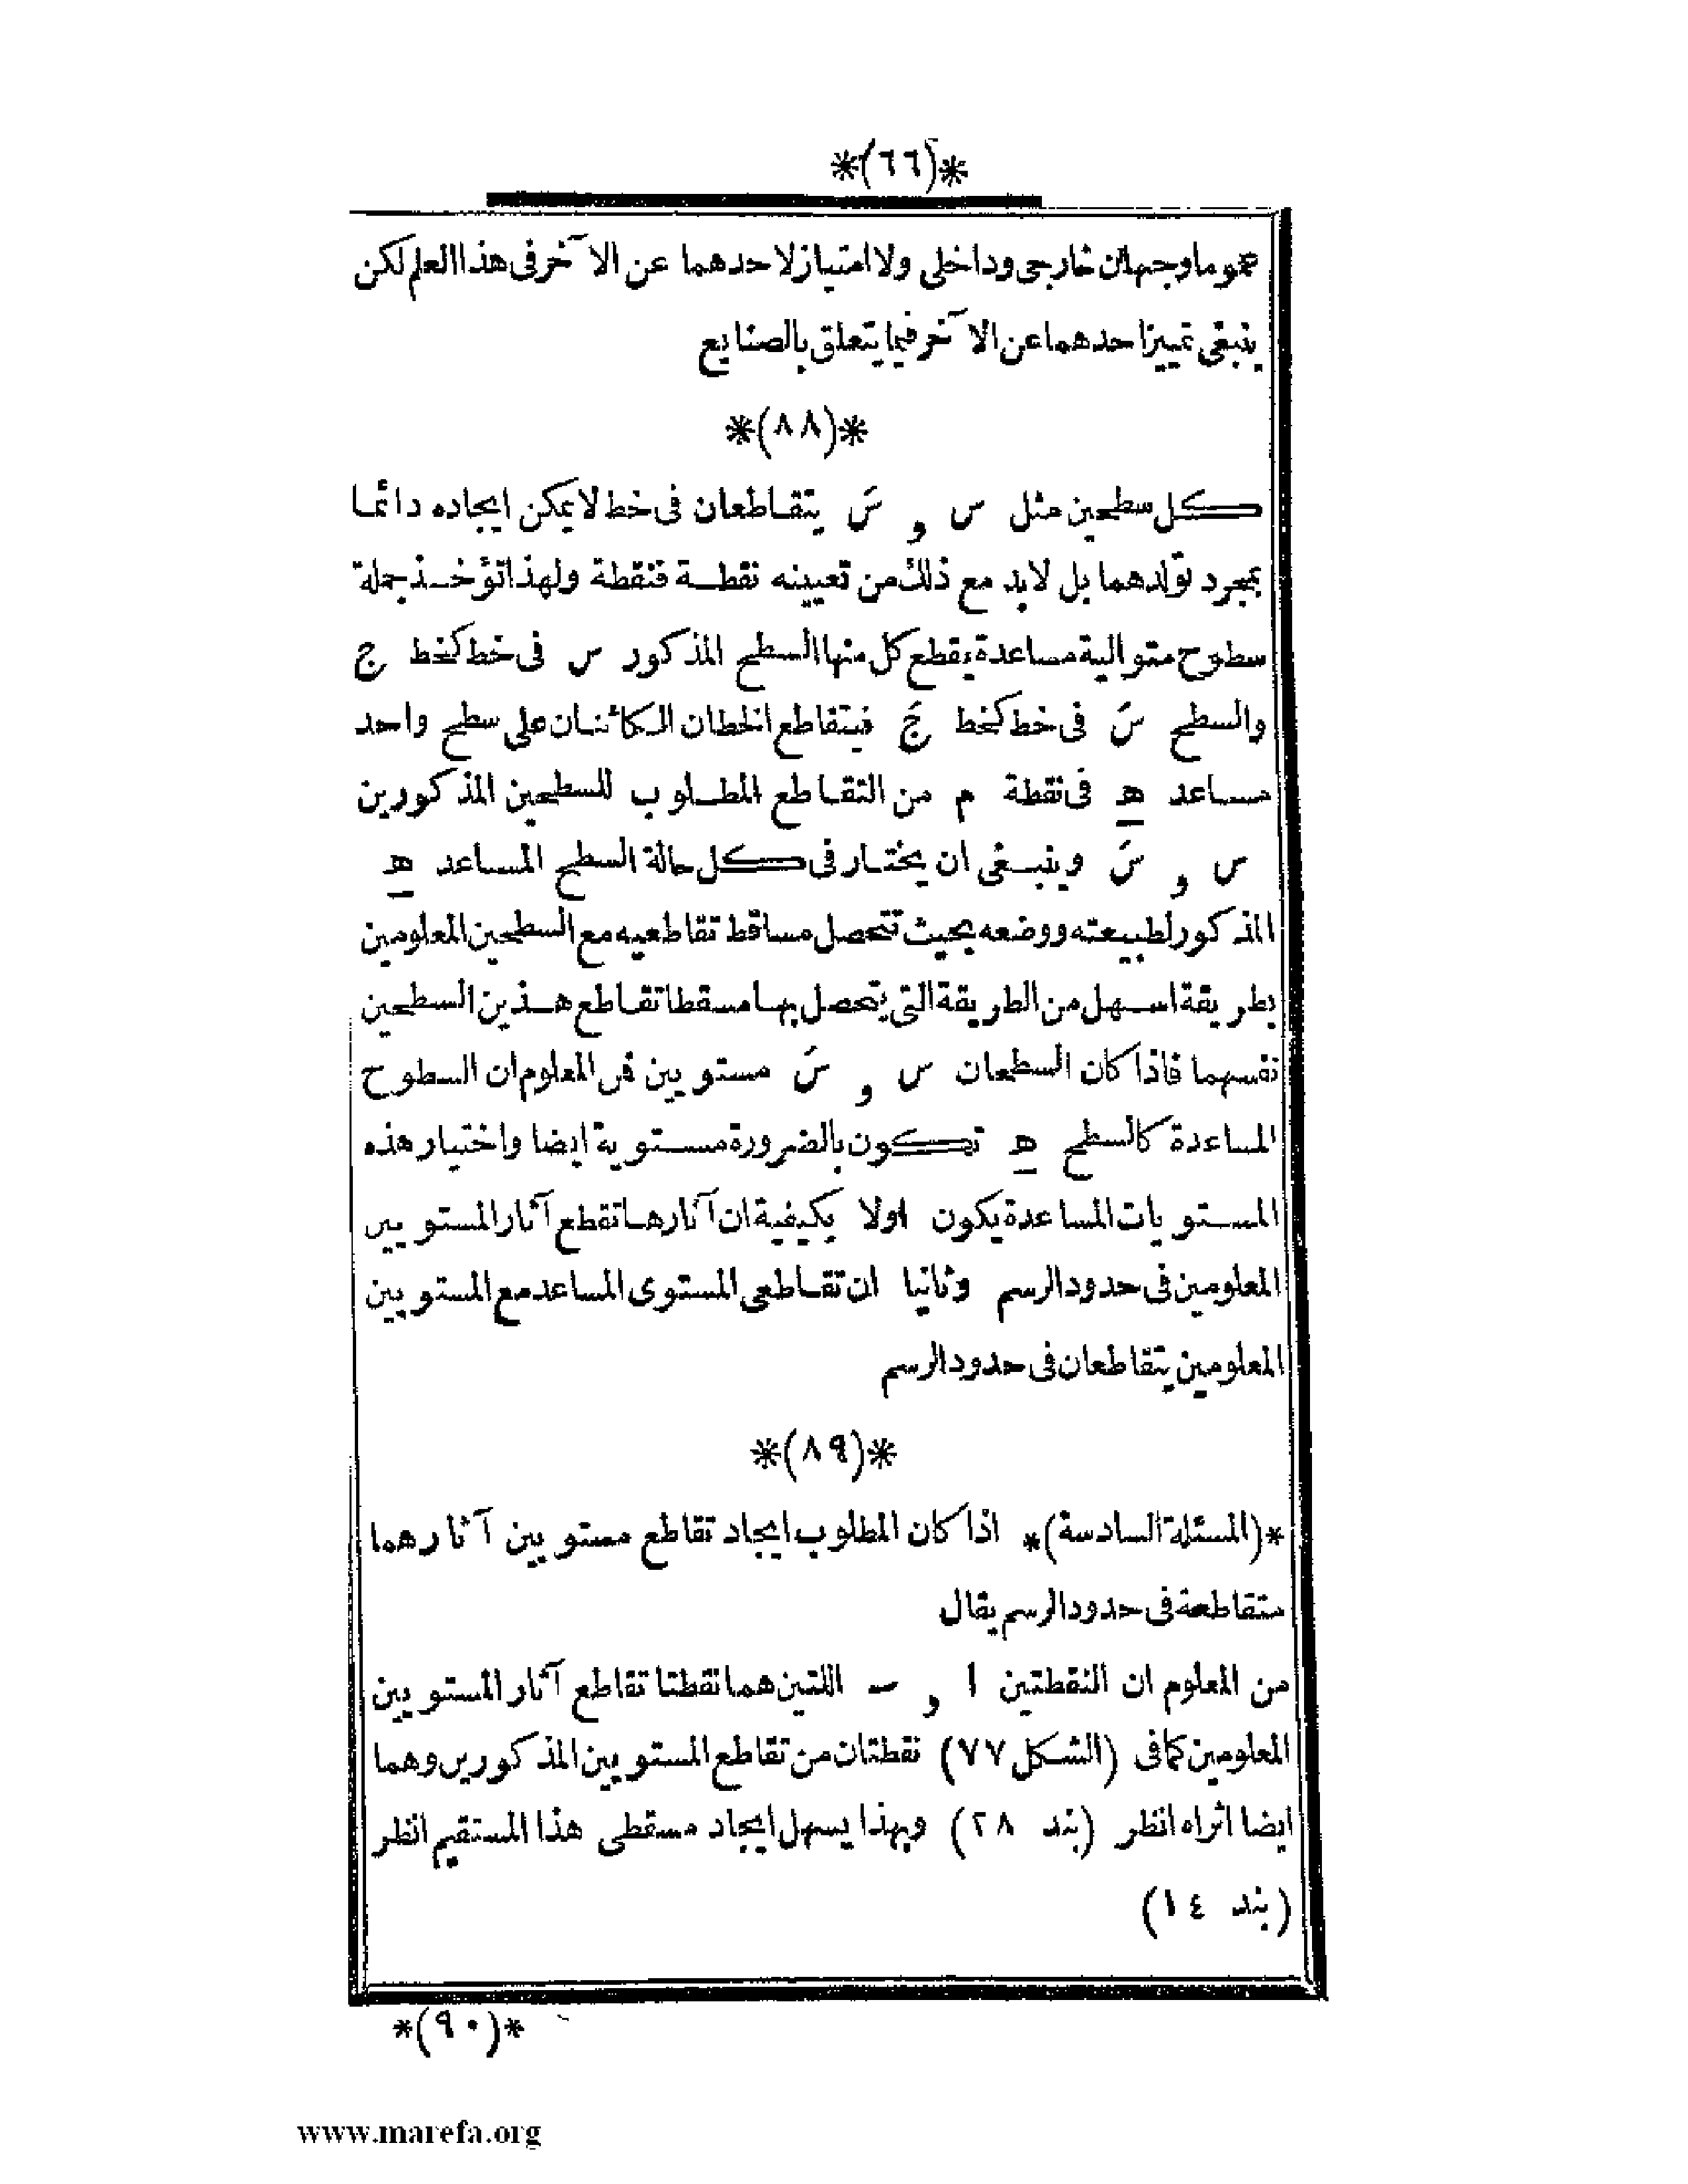 *(٦٦)*
عموما وجهان خارجى وداخلى ولا امتياز لاحدهما عن الآخر فى هذا العلم لكن
ينبغى تمييز احدهما عن الآخر فيما يتعلق بالصنايع
*(٨٨)*
كل سطحين مثل س و سَ يتقاطعان فى خط لا يمكن ايجاده دائما
بمجرد تولدهما بل لا بد مع ذلك من تعيينه نقطة فنقطة ولهذا تؤخذ جملة
سطوح متوالية مساعدة يقطع كل منها السطح المذكور س فى خط كخط ج
والسطح سَ فى خط كخط جَ فيتقاطع الخطان الكائنان على سطح واحد
مساعد ھ فى نقطة م من التقاطع المطلوب للسطحين المذكورين
س و سَ وينبغى ان يختار فى كل حالة السطح المساعد ھ
المذكور لطبيعته ووضعه بحيث تتحصل مساقط تقاطعيه مع السطحين المعلومين
بطريقة اسهل من الطريقة التى يتحصل بها مسقطا تقاطع هذين السطحين
نفسهما فاذا كان السطحان س و سَ مستويين فمن المعلوم ان السطوح
المساعدة كالسطح ھ تكون بالضرورة مستوية ايضا واختيار هذه
المستويات المساعدة يكون اولا بكيفية ان آثارها تقطع آثار المستويين
المعلومين فى حدود الرسم وثانيا ان تقاطعى المستوى المساعد مع المستويين
المعلومين يتقاطعان فى حدود الرسم
*(٨٩)*
*(المسئلة السادسة)* اذا كان المطلوب ايجاد تقاطع مستويين آثارهما
متقاطعة فى حدود الرسم يقال
من المعلوم ان النقطتين ا و ٮ اللتين هما نقطتا تقاطع آثار المستويين
المعلومين كما فى (الشكل ٧٧) نقطتان من تقاطع المستويين المذكورين وهما
ايضا اثراه انظر (بند ٢٨) وبهذا يسهل ايجاد مسقطى هذا المستقيم انظر
(بند ١٤)
*(٩٠)*
www.marefa.org